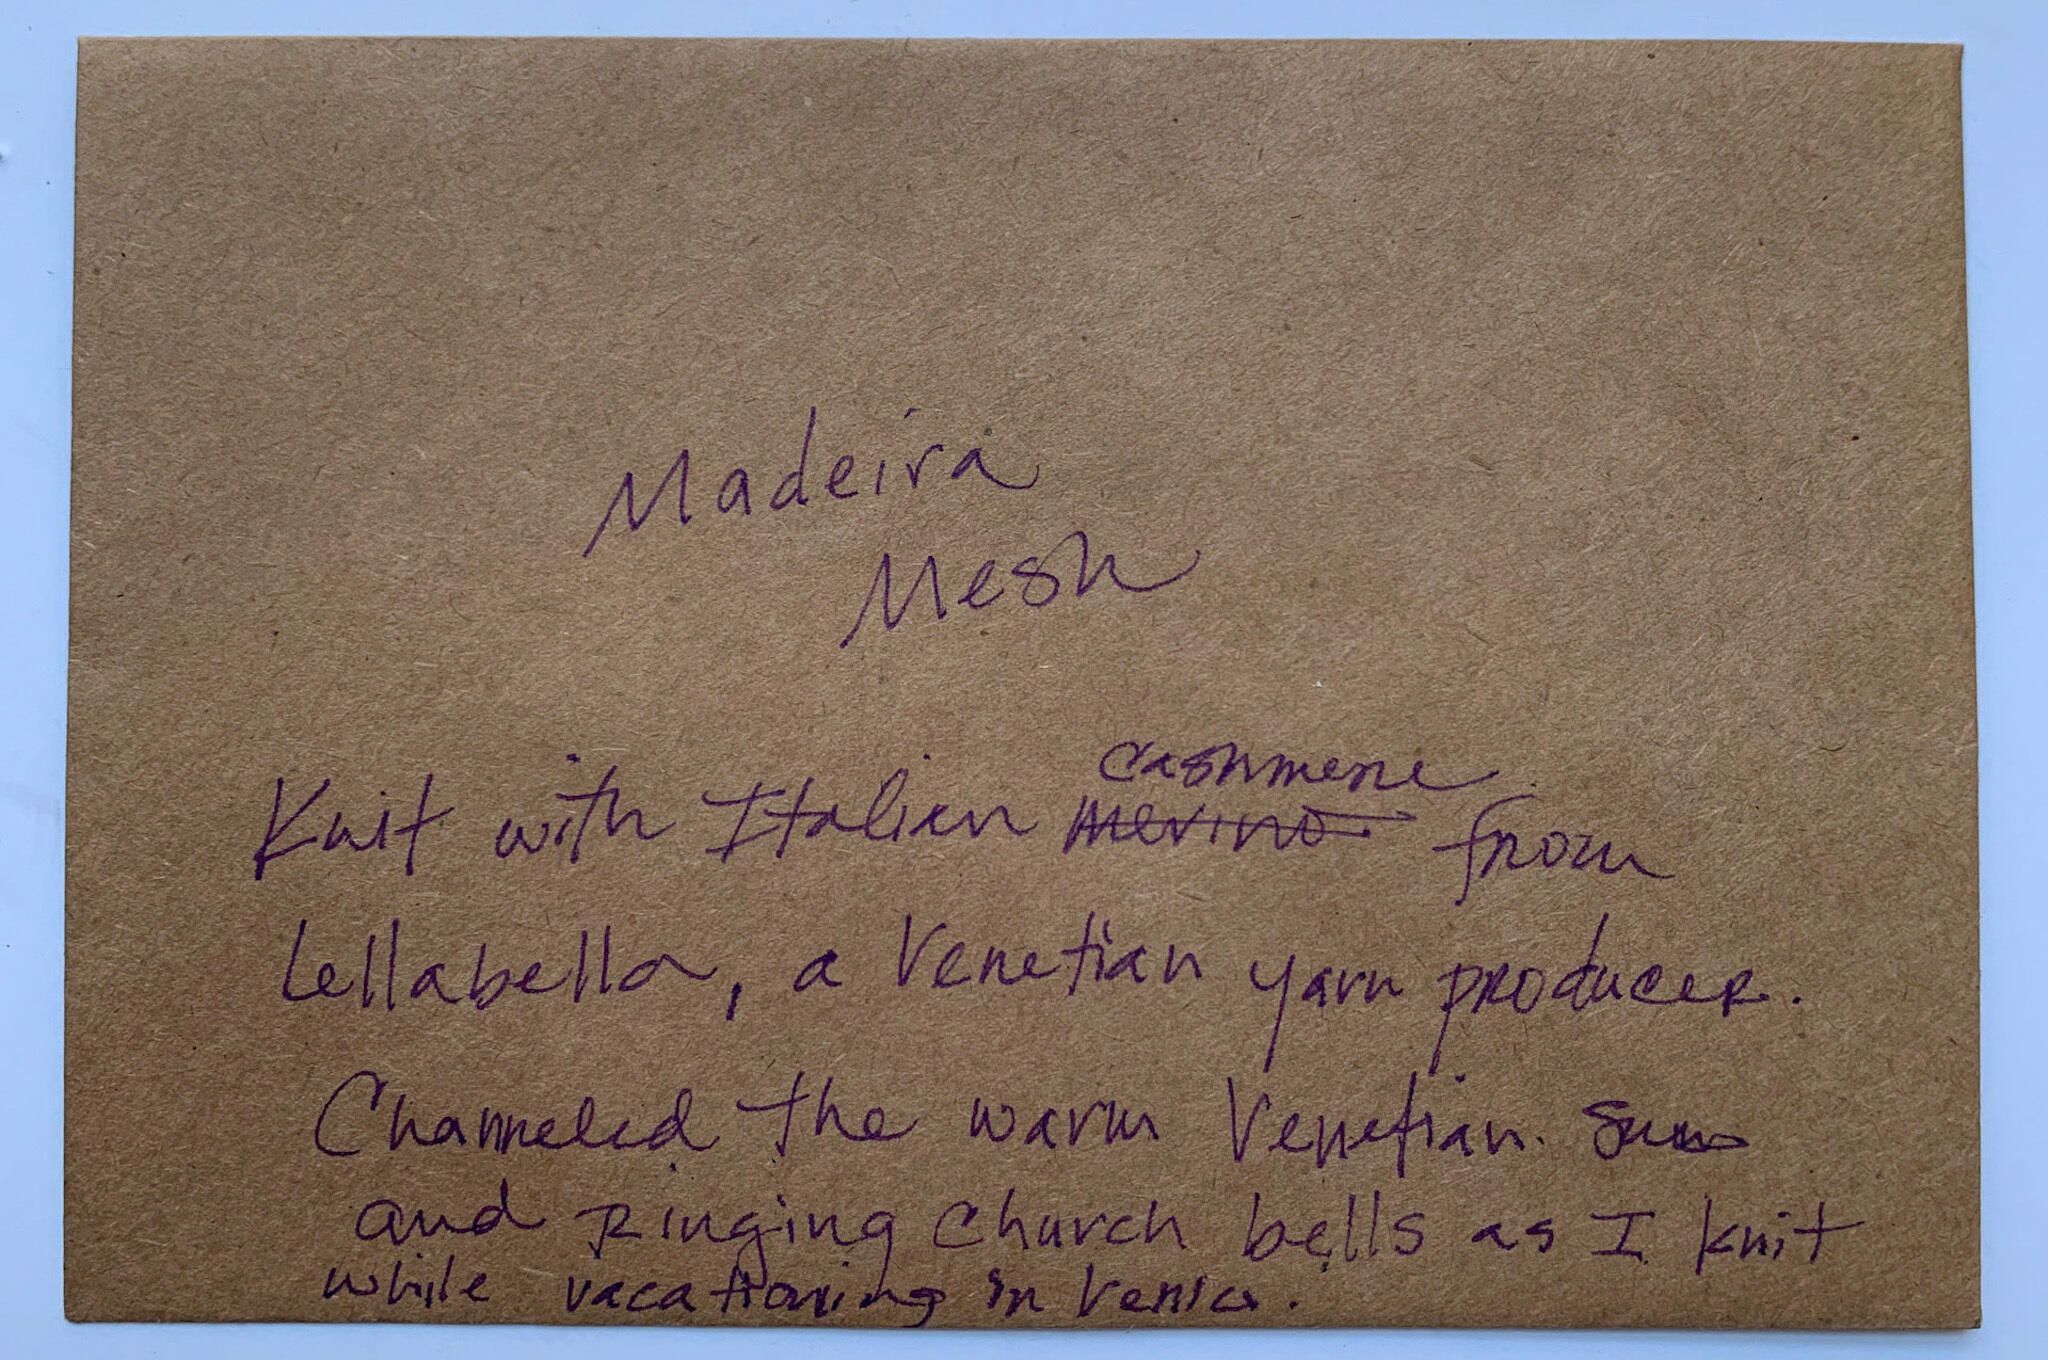 Madeira
Mesh
cashmere
Knit with Italian merino from
Lellabella, a Venetian yarn producer.
Channeled the warm Venetian sun
and ringing church bells as I knit
while vacationing in Venice.